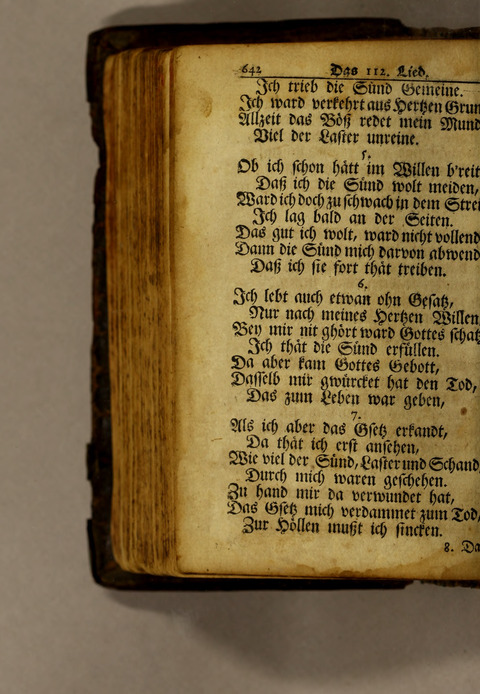 642 Das 112. Lied.
Ich trieb die Sünd Gemeine.
Ich ward verkehrt aus Hertzen Grun
Allzeit das Böß redet mein Mund
Viel der Laster unreine.
5.
Ob ich schon hätt im Willen b'reit
Daß ich die Sünd wolt meiden,
Ward ich doch zu schwach in dem Strei
Ich lag bald an der Seiten.
Das gut ich wolt, ward nicht vollend
Dann die Sünd mich darvon abwend
Daß ich sie fort thät treiben.
6.
Ich lebt auch etwan ohn Gesatz,
Nur nach meines Hertzen Willen
Bey mir nit ghört ward Gottes schatz
Ich thät die Sünd erfüllen.
Da aber kam Gottes Gebott,
Dasselb mir gwürcket hat den Tod,
Das zum Leben war geben,
7.
Als ich aber das Gsetz erkandt,
Da thät ich erst ansehen,
Wie viel der Sünd, Laster und Schand,
Durch mich waren geschehen.
Zu hand mir da verwundet hat,
Das Gsetz mich verdammet zum Tod,
Zur Höllen mußt ich sincken.
8. Da